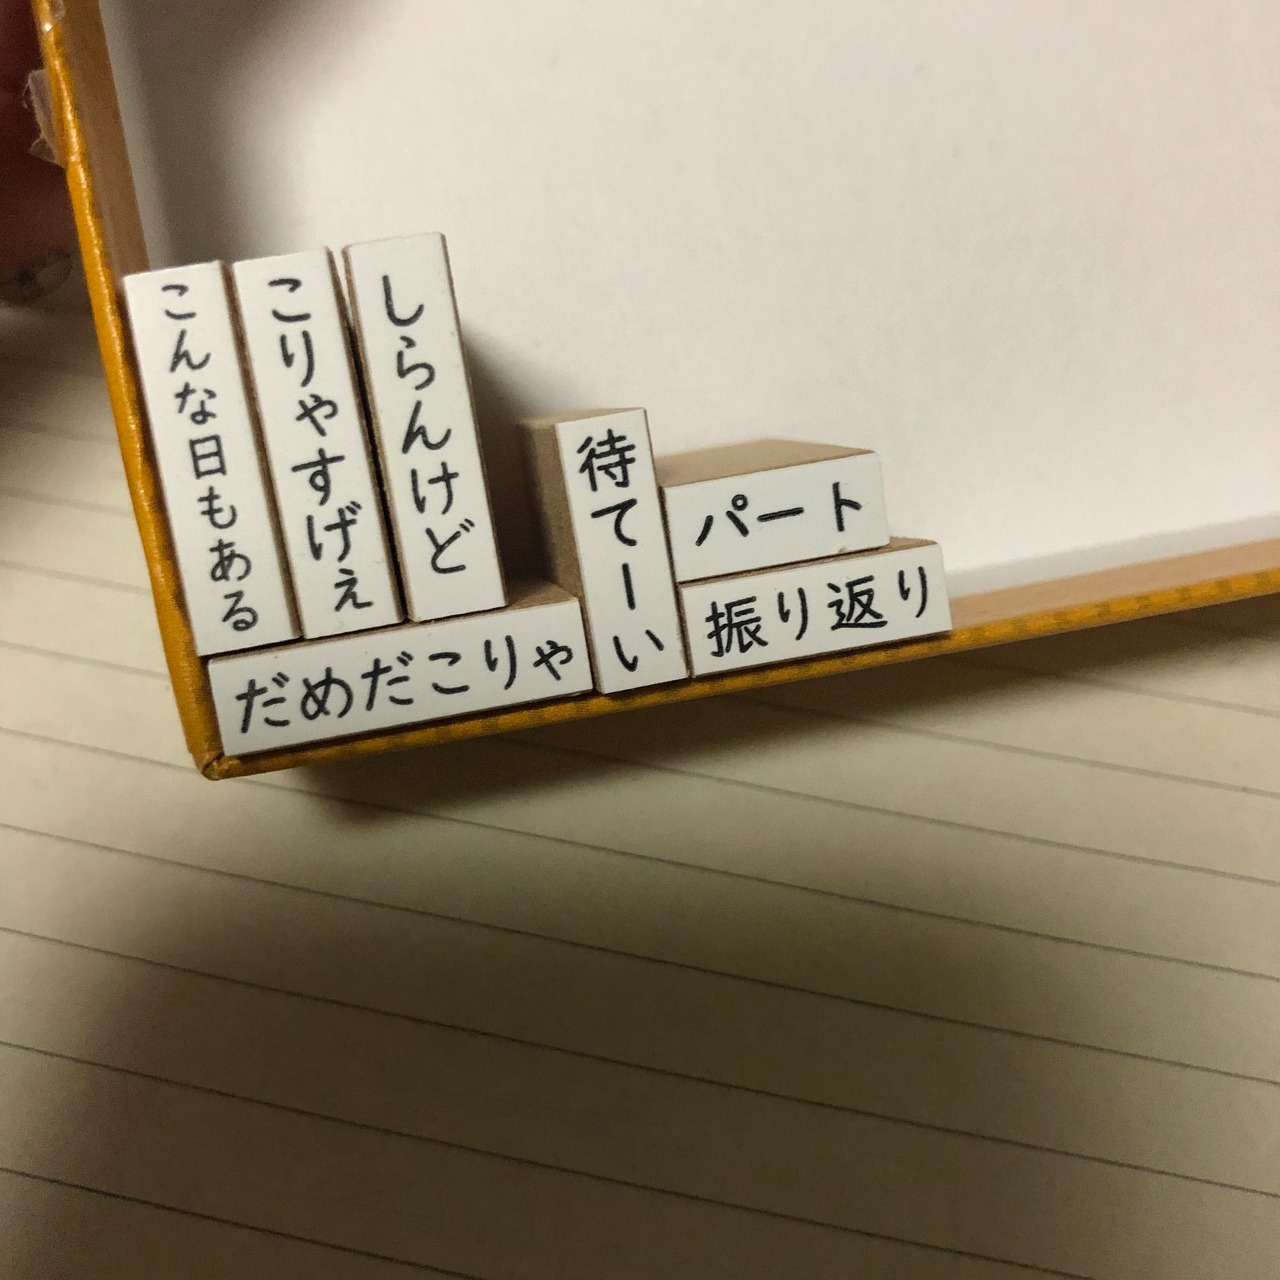 こんな日もある
こりゃすげぇ
しらんけど
だめだこりゃ
待てーい
パート
振り返り